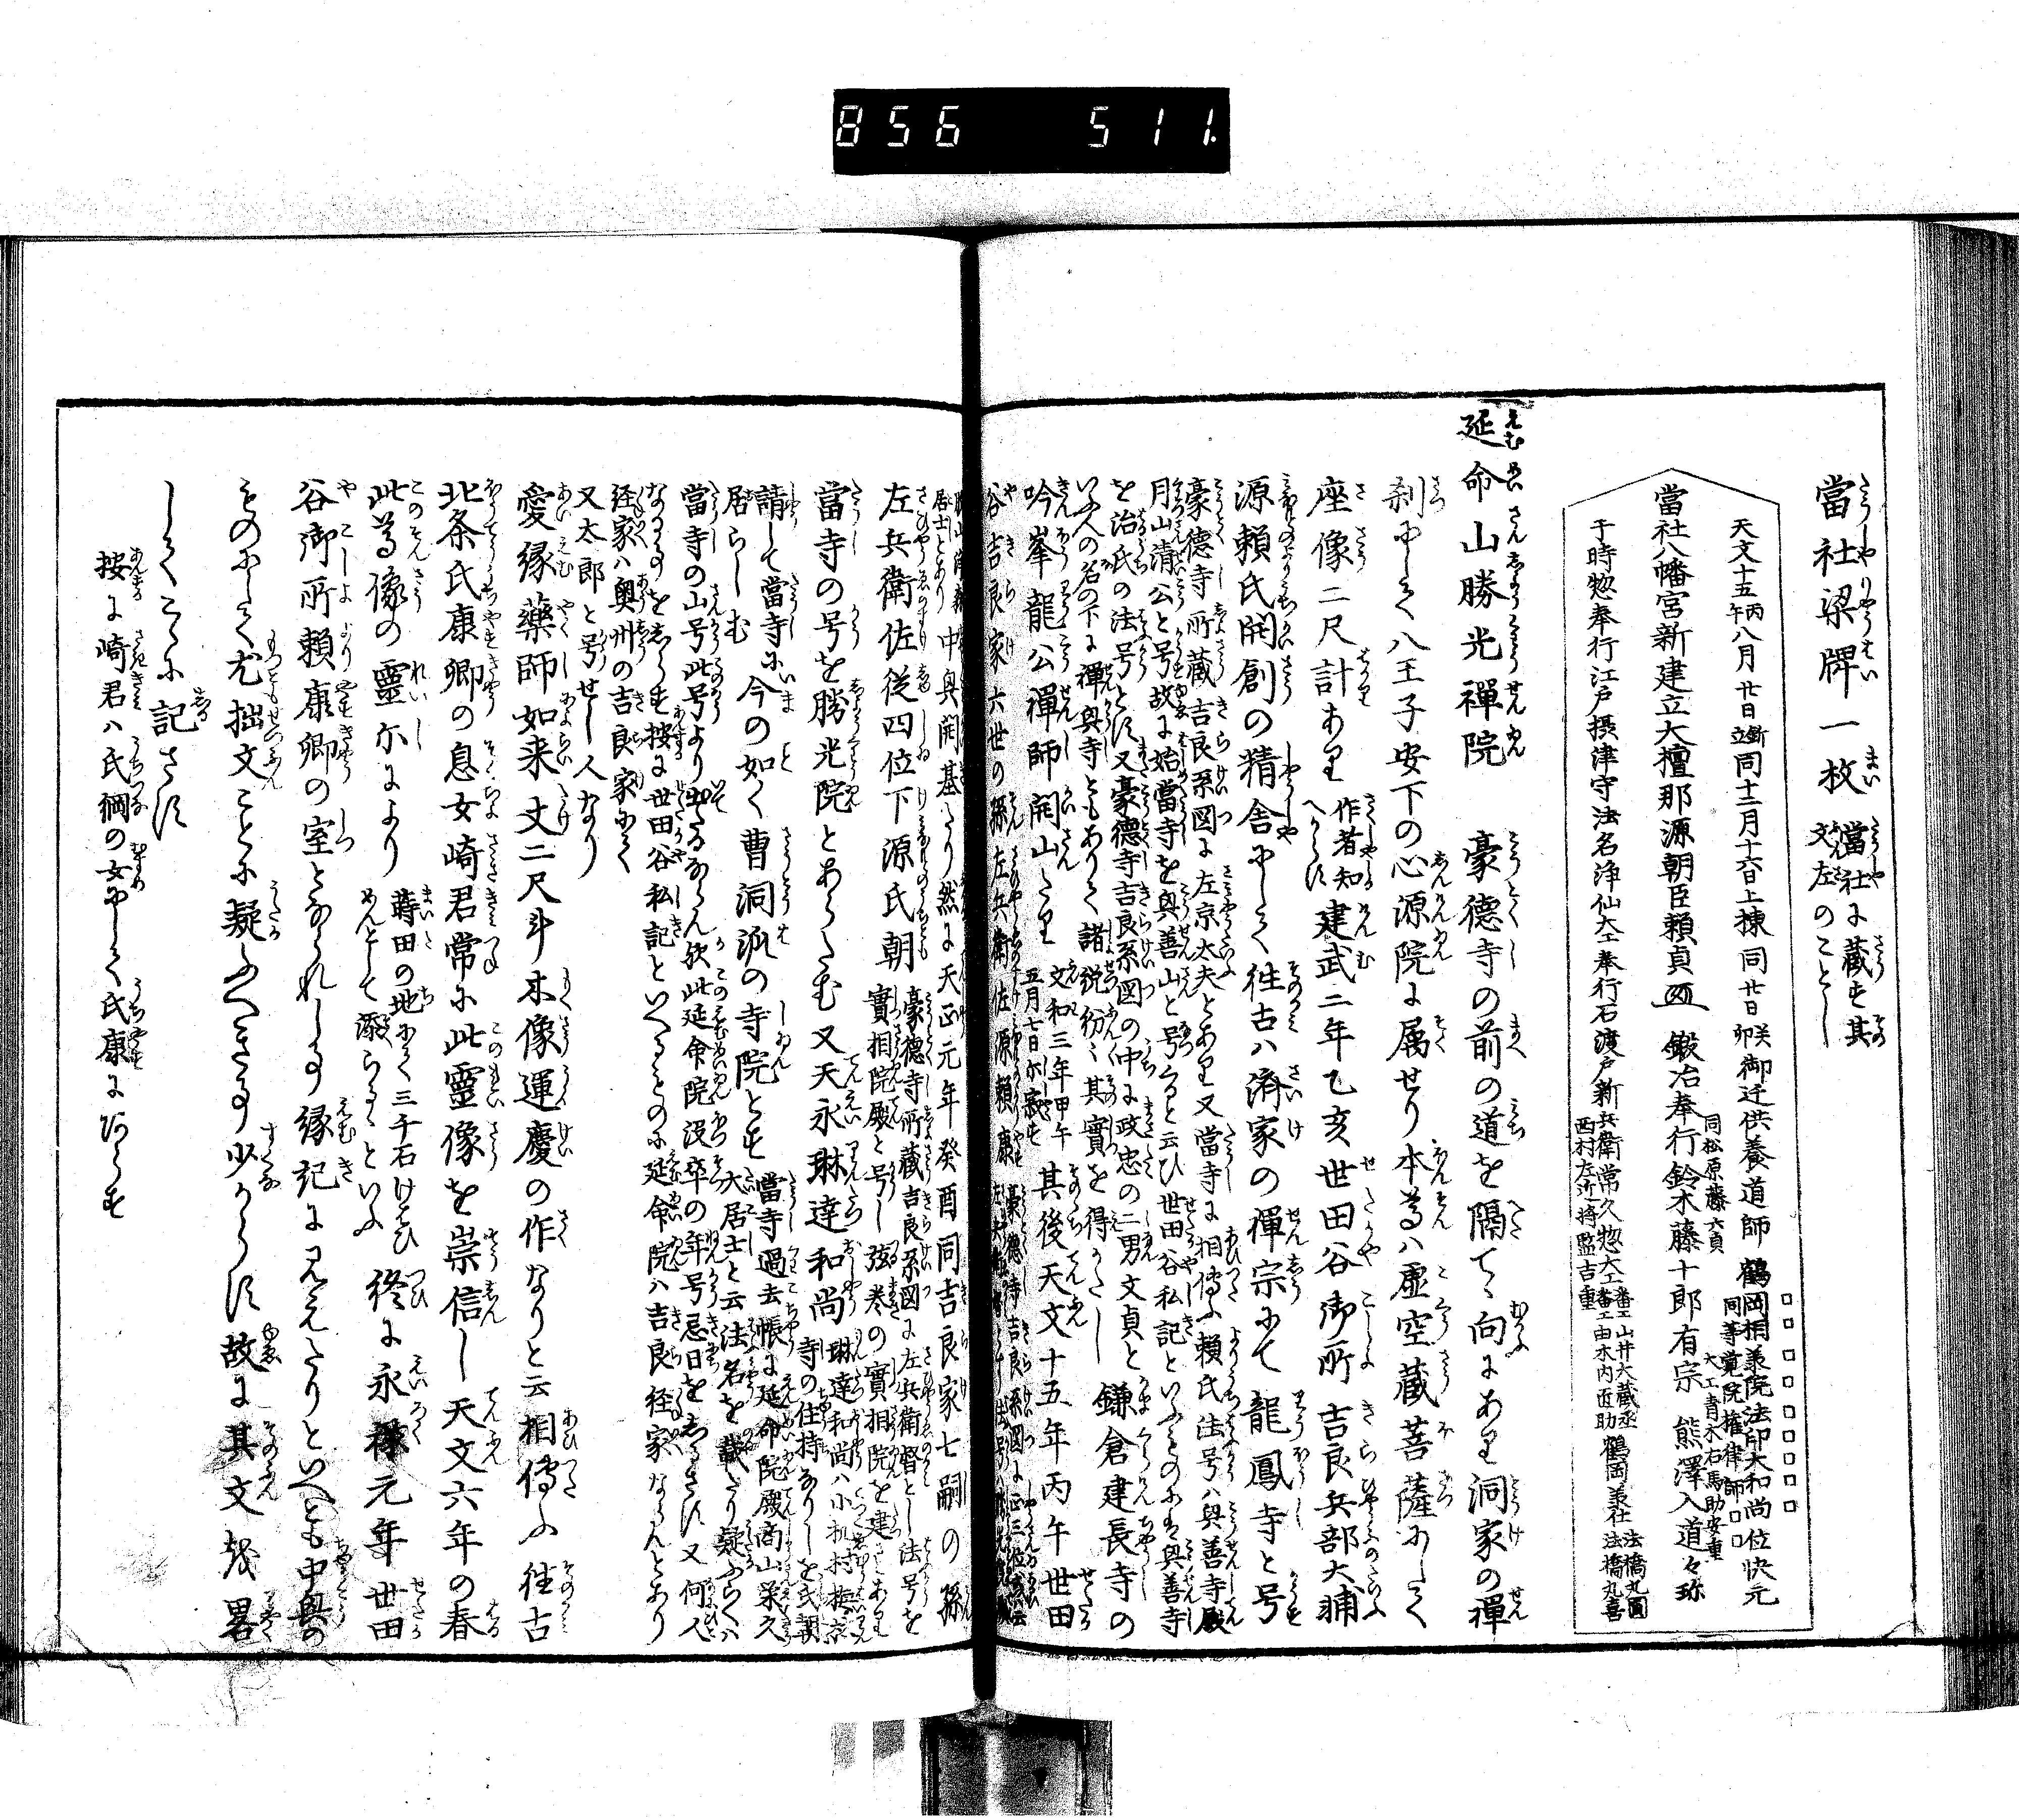 856 511.
當社梁牌一枚 當社に蔵む其文左のことし
天文十五丙午八月廿日斬立同十二月十六日上棟 同廿日癸卯御迁供養道師 鶴岡相義院法印大和尚位快元
同等覚院権律師
當社八幡宮新建立大檀那源朝臣頼貞 鍛冶奉行鈴木藤十郎有宗 熊澤入道々珎
同松原藤六貞 大工青木右馬助安重
于時惣奉行江戸摂津守法名浄仙大工奉行石渡戸新兵衛常久惣大工
西村左近将監吉重
番工山井大蔵丞 番工由木内匠助 鶴岡義社 法橋丸圓 法橋丸喜
延命山勝光禪院 豪徳寺の前の道を隔てゝ向にあり洞家の禪
刹にして八王子安下の心源院に属せり本尊ハ虚空蔵菩薩にして
座像二尺計あり 作者知へからす 建武二年乙亥世田谷御所吉良兵部大輔
源頼氏開創の精舎にして往古ハ濟家の禪宗にて龍鳳寺と号
豪德寺所蔵吉良系図に左京太夫とあり又當寺に相傳ふ頼氏法号ハ興善寺殿
月山清公と号故に始當寺を興善山と号すと云ひ世田谷私記といふものには興善寺
を治氏の法号とす又豪徳寺吉良系図の中に政忠の二男文貞と
いふ人の名の下に禪興寺ともありて諸説紛〻其實を得かたし 鎌倉建長寺の
吟峯龍公禪師開山たり 文和三年甲午五月七日示寂す 其後天文十五年丙午世田
谷吉良家六世の孫左兵衛佐源頼康 豪徳寺吉良系図に正三位
居士とあり 中興開基たり然に天正元年癸酉同吉良家七嗣の孫
左兵衛佐従四位下源氏朝 豪徳寺所蔵吉良系図に左兵衛督とし法号を實相院殿と号し弦巻の實相院を建とあり
當寺の号を勝光院とあらたむ又天永琳達和尚 琳達和尚ハ小机村
寺の住持なりしを氏朝
請して當寺に今の如く曹洞派の寺院とす 當寺過去帳に延命院殿商山榮久
居らしむ 大居士と云法名を載たり疑ふらくハ
當寺の山号此号より出たるならん欤此延命院没卒の年号忌日をしるさす又何人
なる事をしらす按に世田谷私記といへるものに延命院ハ吉良経家ならんとあり
経家ハ奥州の吉良家にて
又太郎と号せし人なり
愛縁藥師如来 丈二尺斗木像運慶の作なりと云相傳ふ往古
北条氏康卿の息女崎君常に此靈像を崇信し天文六年の春
此尊像の靈示により 蒔田の地にて三千石けはひめんとして添らるゝといふ 終に永祿元年世田
谷御所頼康卿の室となられし事縁記に見えたりといへとも中興の
ものにして尤拙文ことに疑ふへき事少からす故に其文を畧
してこゝに記さす
按に崎君ハ氏綱の女にして氏康にあらす